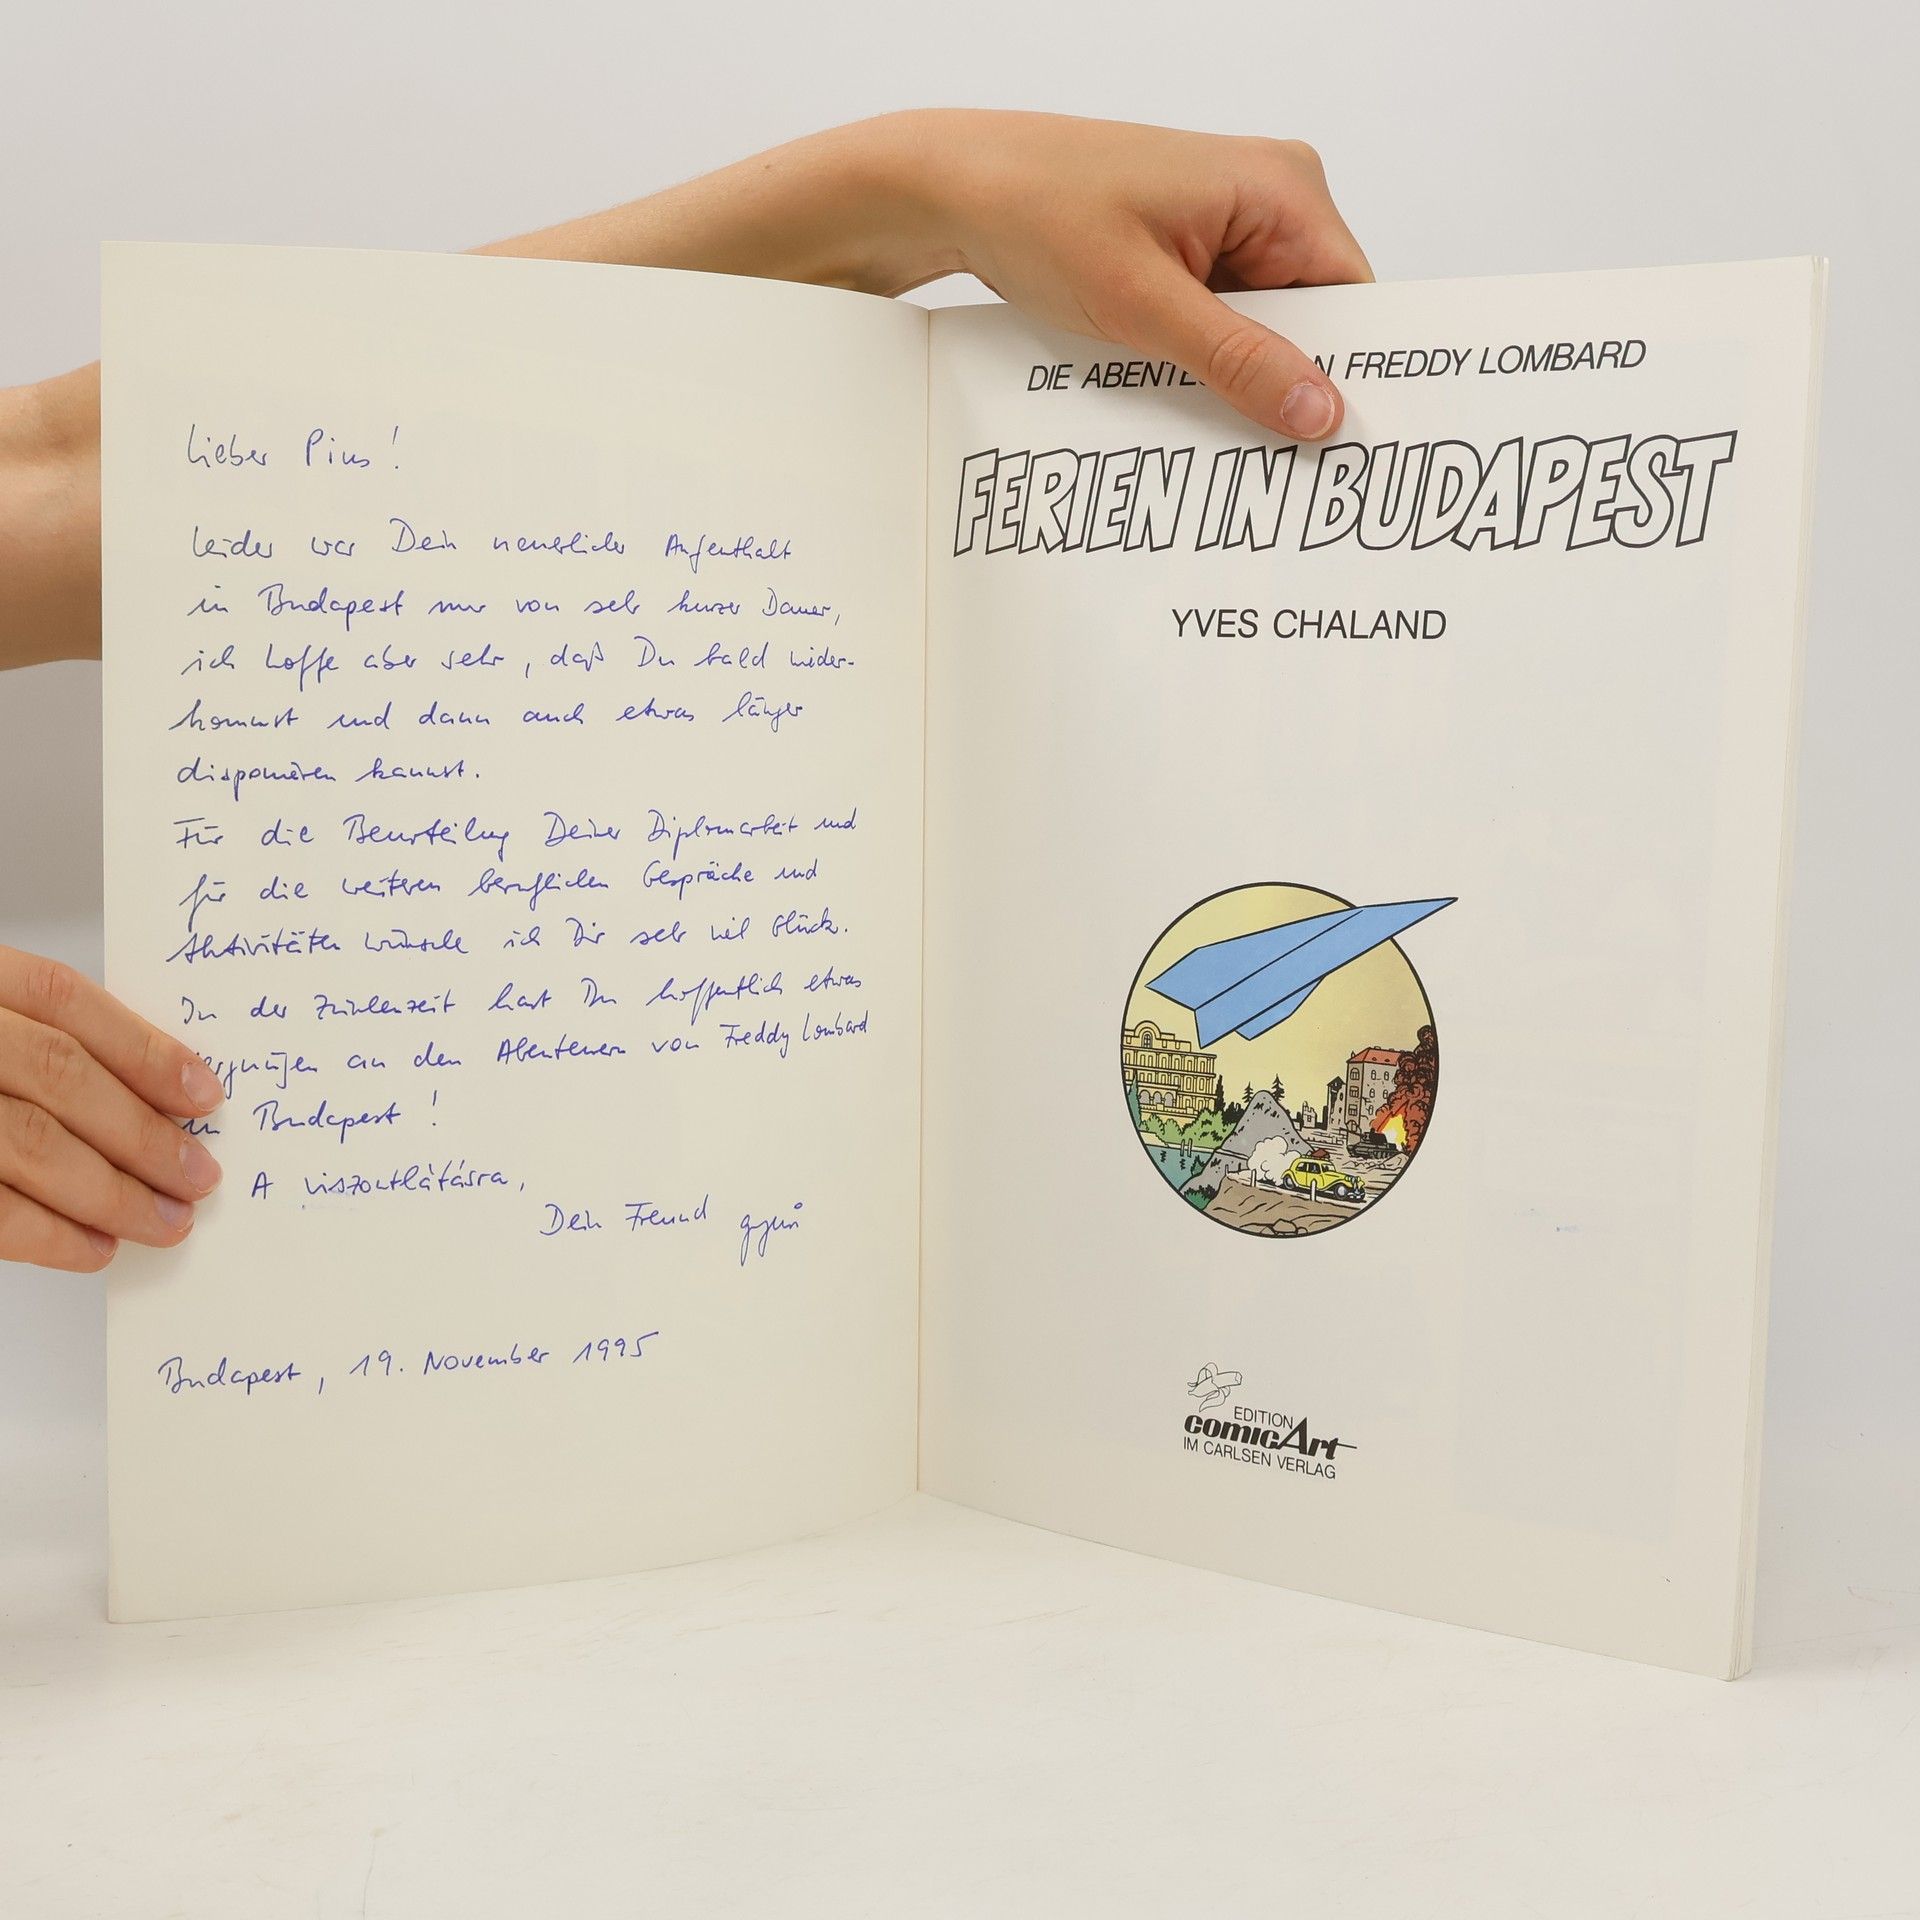 Lieber Pius!
Leider war Dein neuerlicher Aufenthalt
in Budapest nur von sehr kurzer Dauer,
ich hoffe aber sehr, daß Du bald wieder-
kommst und dann auch etwas länger
disponieren kannst.
Für die Beurteilung Deiner Diplomarbeit und
für die weiteren beruflichen Gespräche und
Aktivitäten wünsche ich Dir sehr viel Glück.
In der Zwischenzeit hast Du hoffentlich etwas
ergnügen an den Abenteuern von Freddy Lombard
in Budapest!
A viszontlátásra,
Dein Freund
Budapest, 19. November 1995
DIE ABENTEU N FREDDY LOMBARD
FERIEN IN BUDAPEST
YVES CHALAND
EDITION
comicArt
IM CARLSEN VERLAG